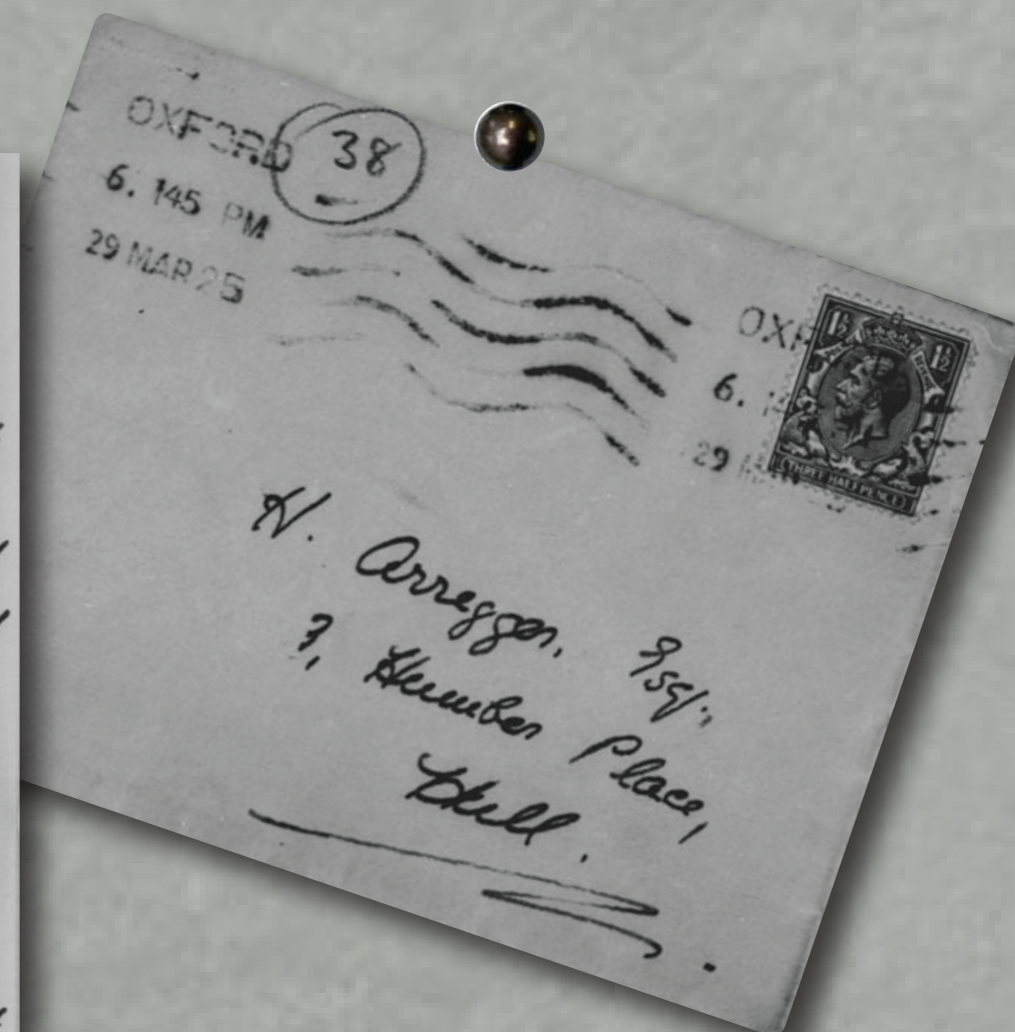 OXFORD
38
6. 145 PM
29 MAR 25
OXF
6. 1
29
1½ 1½
THREE HALFPENCE
H. Arregger, Esq.,
7, Humber Place,
Hull.